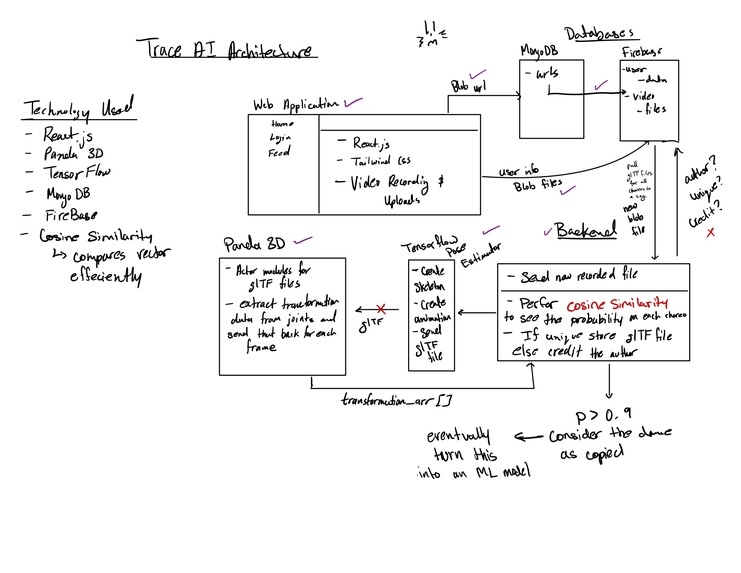 Trace AI Architecture
Technology Used
- React.js
- Panda 3D
- TensorFlow
- MongoDB
- FireBase
- Cosine Similarity
↳ compares vector
effeciently
Web Application ✓
Home
Login
Feed
- React.js
- Tailwind CSS
- Video Recording &
Uploads
Blob url
Databases
MongoDB
- urls
Firebase
- user
- data
- video
- files
user info
Blob files
pull
glTF files
for all
new
blob
file
author?
unique?
credit?
x
Backend
- Send new recorded file
- Perfor cosine similarity
to see the probability on each choreo
- If unique store glTF file
else credit the author
Tensorflow
Pose
Estimator
- create
skeleton
- create
animation
- send
glTF
file
glTF
Panda 3D
- Actor modules for
glTF files
- extract transformation
data from joints and
send that back for each
frame
transformation_arr []
p > 0.9
consider the dance
as copied
eventually
turn this
into an ML model